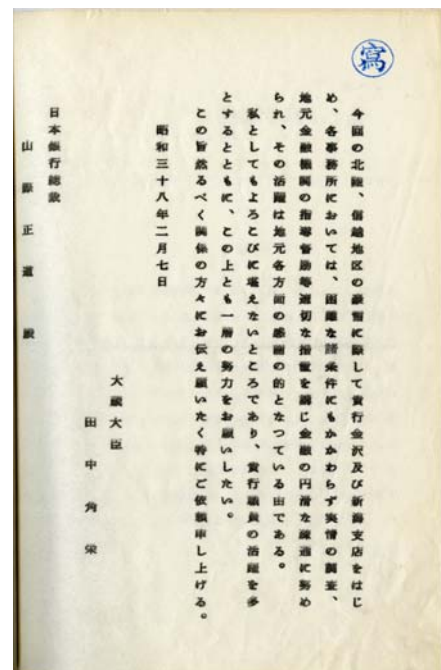 寫
今回の北陸、信越地区の豪雪に際して貴行金沢及び新潟支店をはじ
め、各事務所においては、困難な諸条件にもかかわらず実情の調査、
地元金融機関の指導督励等適切な措置を講じ金融の円滑な疎通に努め
られ、その活躍は地元各方面の感謝の的となつている由である。
私としてもよろこびに堪えないところであり、貴行職員の活躍を多
とするとともに、この上とも一層の努力をお願いしたい。
この旨然るべく関係の方々にお伝え願いたく特にご依頼申し上げる。
昭和三十八年二月七日
大蔵大臣
田中角栄
日本銀行総裁
山際正道殿